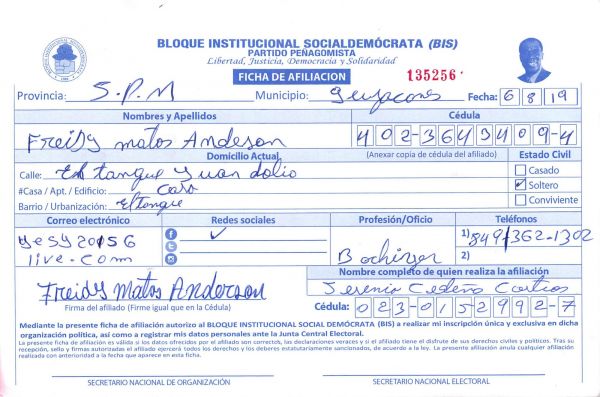 BLOQUE INSTITUCIONAL SOCIALDEMÓCRATA (BIS)
PARTIDO PEÑAGOMISTA
Libertad, Justicia, Democracia y Solidaridad
FICHA DE AFILIACION
135256
Provincia: S.P.M Municipio: Fecha: 6 8 19
Nombres y Apellidos Cédula
Freidy matos Andeson 402-3643409-4
Domicilio Actual (Anexar copia de cédula del afiliado) Estado Civil
Calle: El tanque Juan dolio Casado
#Casa / Apt. / Edificio: Casa Soltero
Barrio / Urbanización: El tanque Conviviente
Correo electrónico Redes sociales Profesión/Oficio Teléfonos
yesy20156 1) 849 362-1302
live.com 2)
Nombre completo de quien realiza la afiliación
Freidy Matos Anderson Cedeño
Firma del afiliado (Firme igual que en la Cédula) Cédula: 023-0152992-7
Mediante la presente ficha de afiliación autorizo al BLOQUE INSTITUCIONAL SOCIAL DEMÓCRATA (BIS) a realizar mi inscripción única y exclusiva en dicha
organización política, así como a registrar mis datos personales ante la Junta Central Electoral.
La presente ficha de afiliación es válida si los datos ofrecidos por el afiliado son correctos, las declaraciones veraces y si el afiliado tiene el disfrute de sus derechos civiles y políticos. Tras su
recepción, sello y firmas autorizadas el afiliado ejercerá todos los derechos y los deberes estatutariamente sancionados, de acuerdo a la ley. La presente afiliación anula cualquier afiliación
realizada con anterioridad a la fecha que aparece en esta ficha.
SECRETARIO NACIONAL DE ORGANIZACIÓN SECRETARIO NACIONAL ELECTORAL